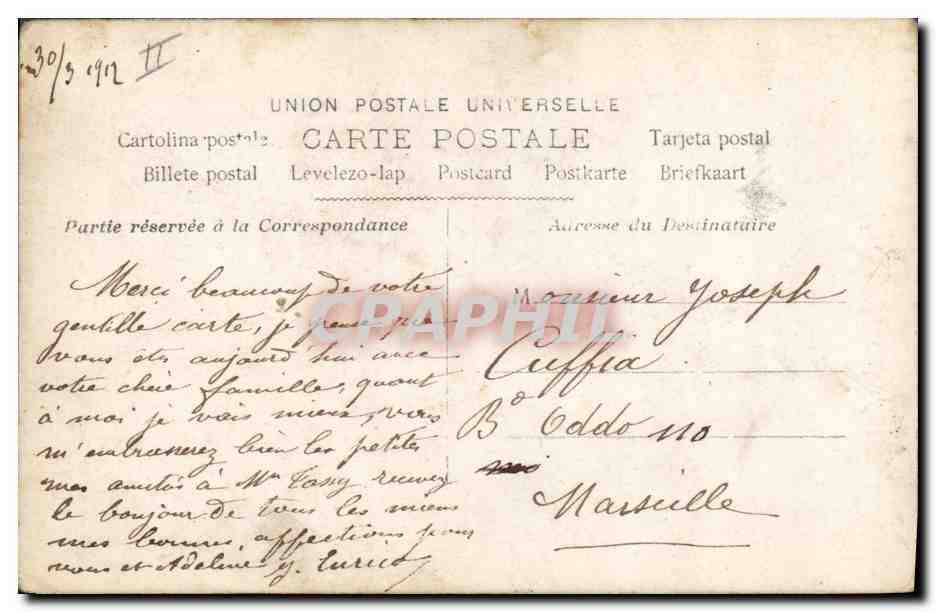 30/3 1912 II
UNION POSTALE UNIVERSELLE
Cartolina postale CARTE POSTALE Tarjeta postal
Billete postal Levelezo-lap Postcard Postkarte Briefkaart
Partie réservée à la Correspondance
Merci beaucoup de votre
gentille carte, je pense que
vous êts aujourd'hui avec
votre chère famille, quant
à moi je vais mieux, vous
m'embrasserez bien les petites
mes amitiés à Mme Tassy recevez
le bonjour de tous les miens
mes bonnes affections pour
vous et Adeline
Adresse du Destinataire
Monsieur Joseph
Cuffia
Bd Oddo 110
Marseille
CPAPHIL